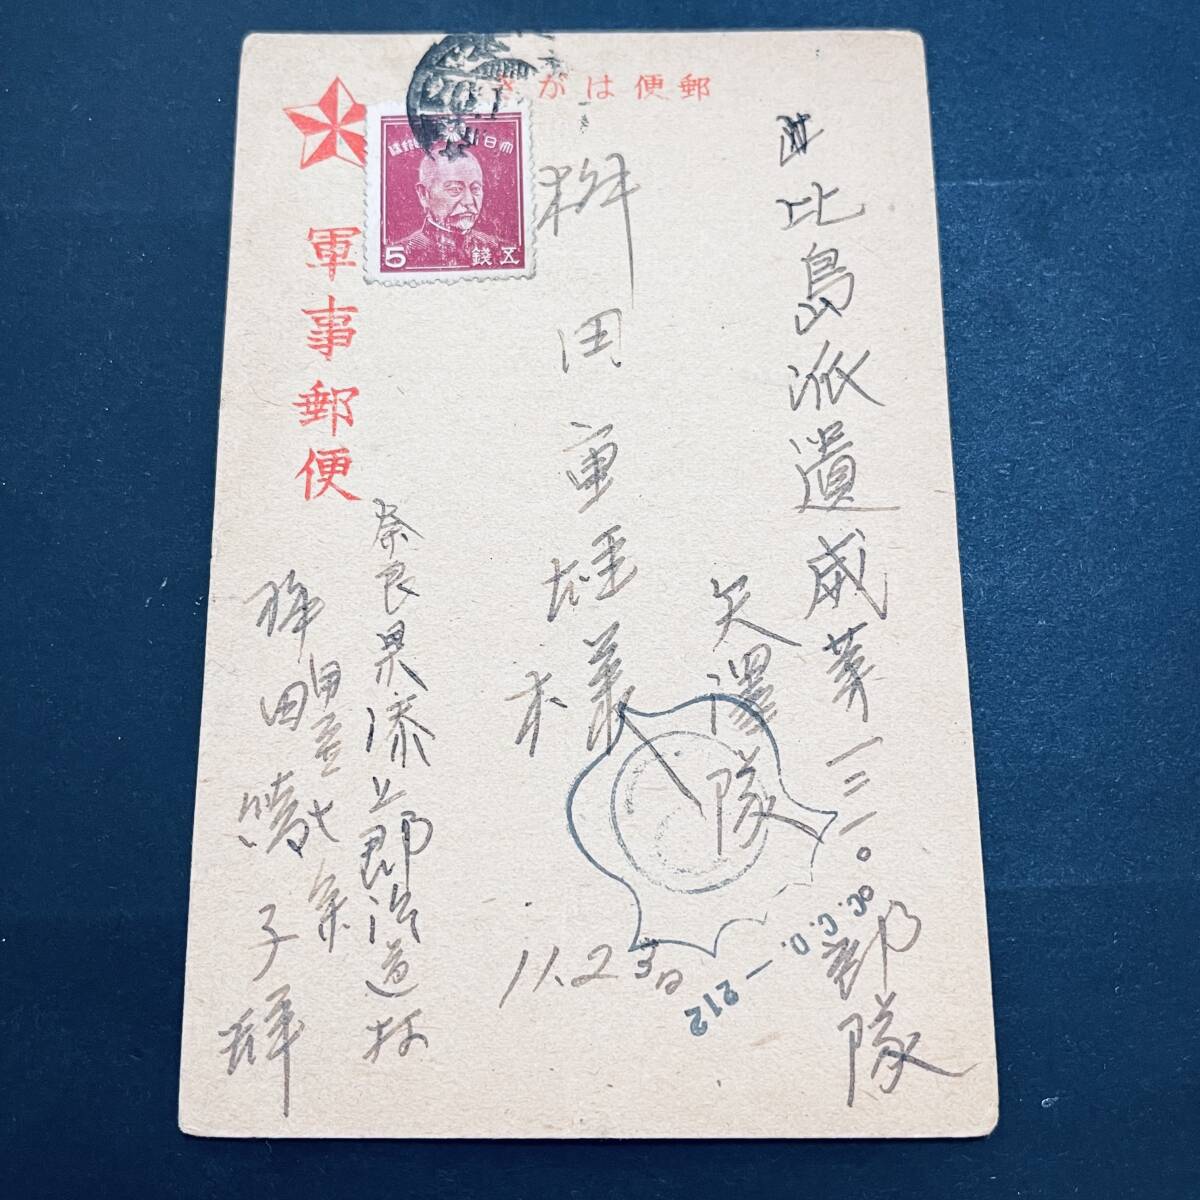 郵便はがき
軍事郵便
大日本帝国郵便
5 五銭
比島派遣威第一三一〇部隊
矢澤隊
桝田重雄様
11.23日
奈良県添上郡治道村
桝田 子拝
OC. C.D. — 212